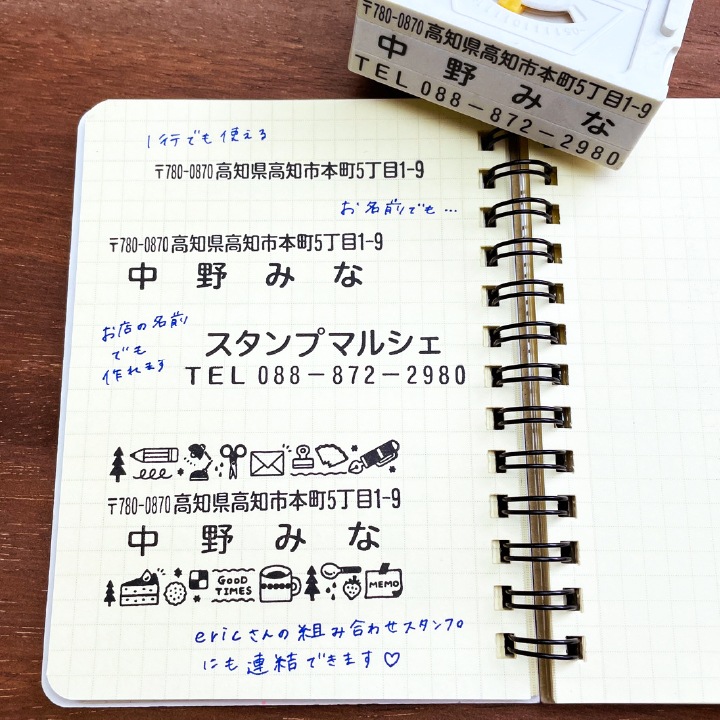 〒780-0870高知県高知市本町5丁目1-9
中野みな
TEL 088-872-2980
1行でも使える
〒780-0870高知県高知市本町5丁目1-9
お名前でも…
〒780-0870高知県高知市本町5丁目1-9
中野みな
お店の名前
でも
作れます
スタンプマルシェ
TEL 088-872-2980
〒780-0870高知県高知市本町5丁目1-9
中野みな
GOOD
TIMES
MEMO
ericさんの組み合わせスタンプ
にも連結できます♡